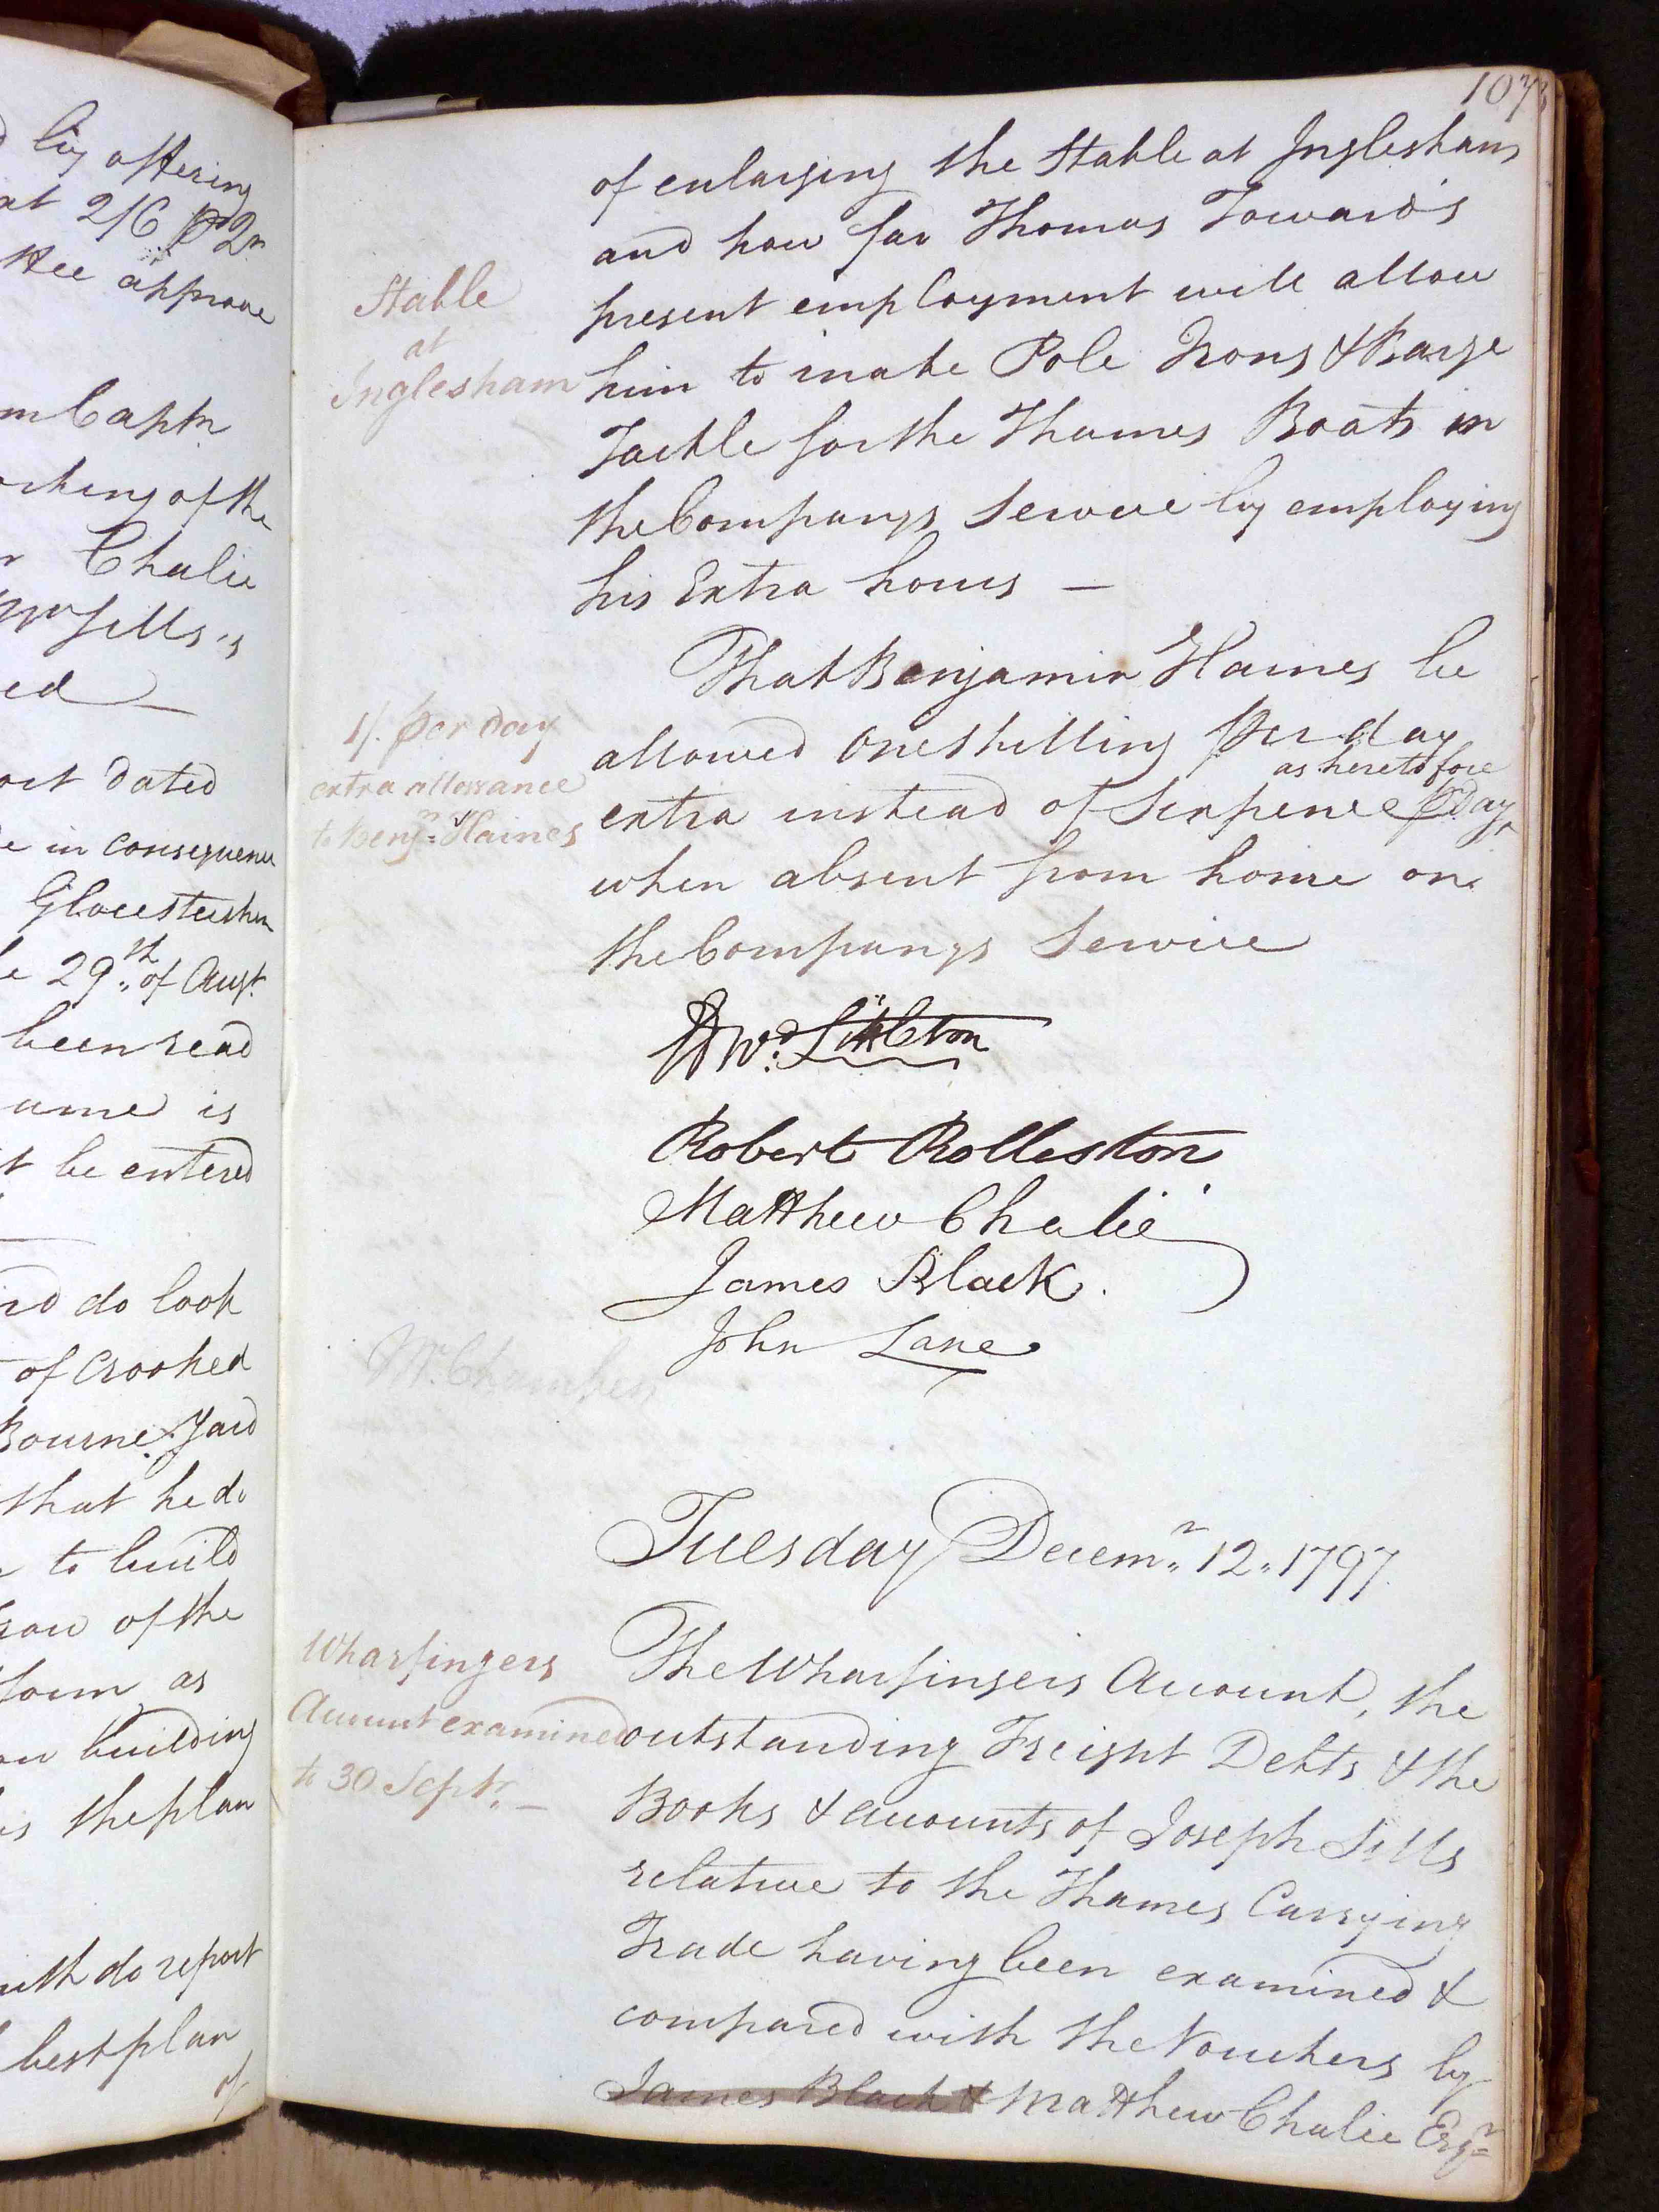 by offering
at 2/6 ⅌ Qr
ttee approve
m Captn
orking of the
Chalie
Mr Sills's
ed —
ort dated
e in consequence
Glocestershire
e 29th of Augt
been read
ame is
t be entered
do look
of Crooked
Bourne Yard
that he do
to build
of the
form as
building
is the plan
with do report
best plan
of
107
of enlarging the Stable at Inglesham
and how far Thomas Toward's
present employment will allow
him to make Pole Irons & Barge
Tackle for the Thames Boats in
the Companys Service by employing
his Extra hours —
Stable
at
Inglesham
That Benjamin Haines be
allowed One Shilling per day
as heretofore
extra instead of Sixpence ⅌ Day
when absent from home on
the Companys Service
1/. per day
extra allowance
to Benjn Haines
Robert Rolleston
Matthew Chalié
James Black.
John Lane
Mr. Chambers
Tuesday Decemr 12. 1797.
The Wharfingers Account, the
outstanding Freight Debts & the
Books & accounts of Joseph Sills
relative to the Thames Carrying
Trade having been examined &
compared with the Vouchers by
James Black & Matthew Chalie Esqr
Wharfingers
Account examined
to 30 Septr. —